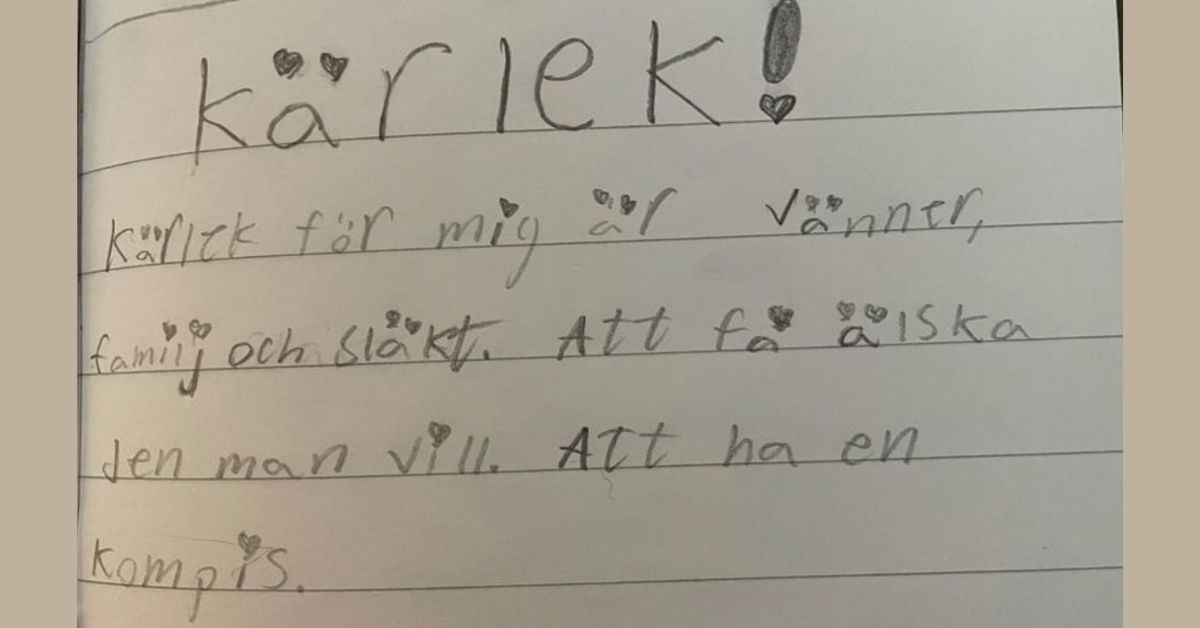 kärlek!
kärlek för mig är vänner,
familj och släkt. Att få älska
den man vill. Att ha en
kompis.